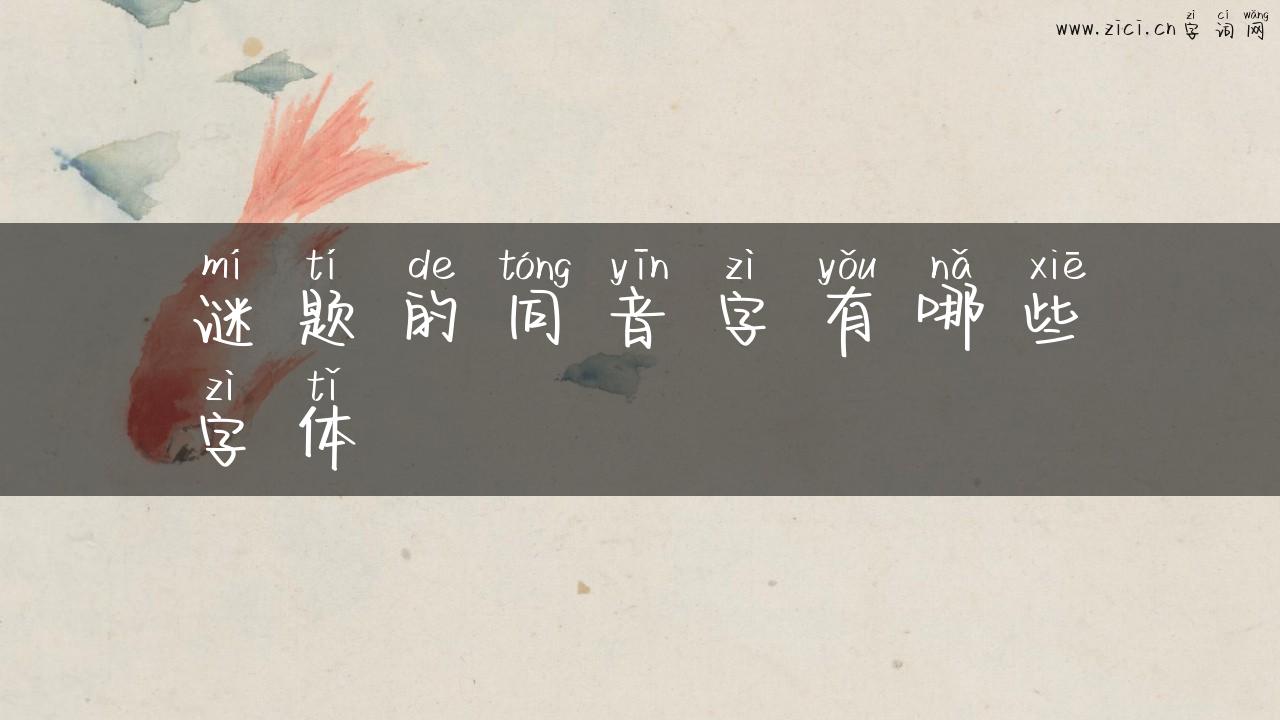 zì cí wǎng
www.zici.cn 字 词 网
mí tí de tóng yīn zì yǒu nǎ xiē
谜 题 的 同 音 字 有 哪 些
zì tǐ
字 体